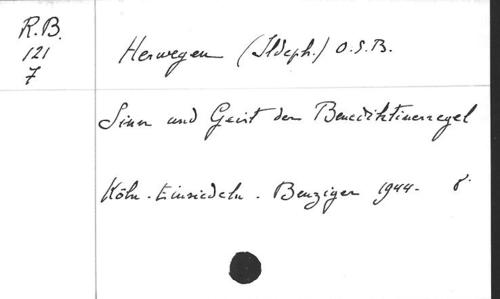 R.B.
121
7
Herwegen (Ildeph.) O.S.B.
Sinn und Geist der Benediktinerregel
Köln - Einsiedeln . Benziger 1944. 8°